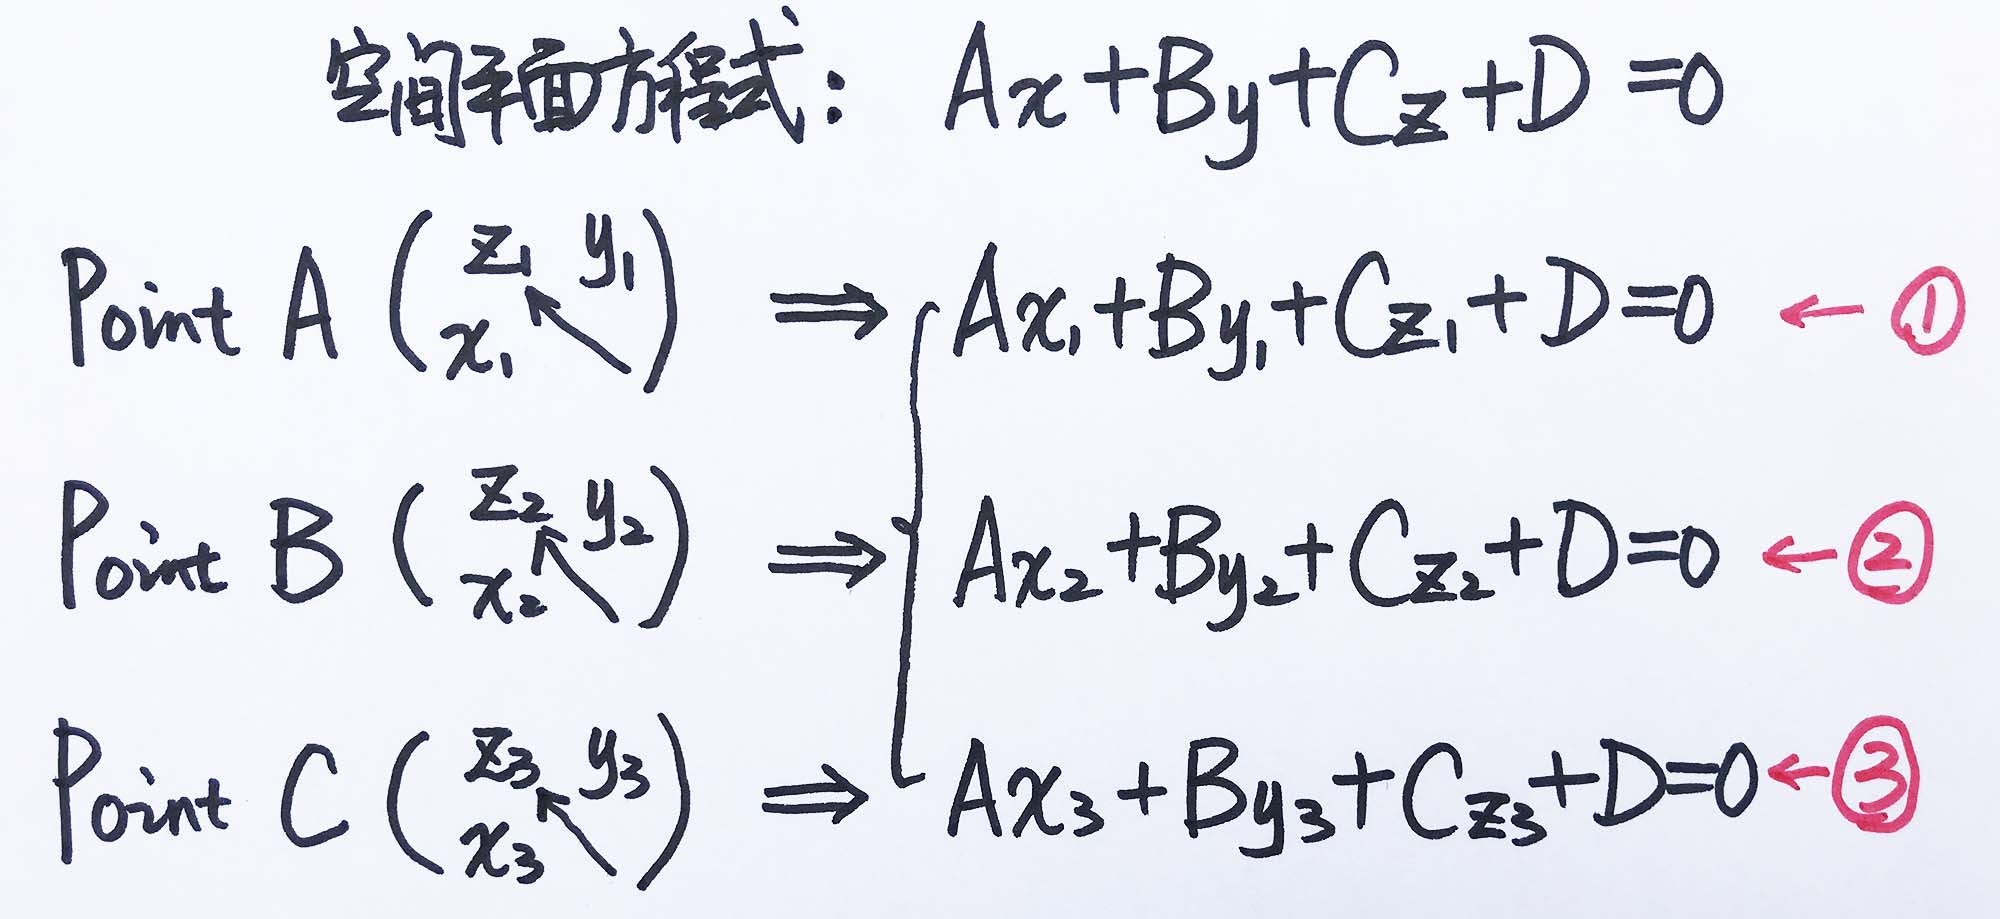 空间平面方程式: Ax+By+Cz+D=0
Point A (z₁ y₁ x₁ ↖) ⇒ Ax₁+By₁+Cz₁+D=0 ← ①
Point B (z₂ y₂ x₂ ↖) ⇒ Ax₂+By₂+Cz₂+D=0 ← ②
Point C (z₃ y₃ x₃ ↖) ⇒ Ax₃+By₃+Cz₃+D=0 ← ③